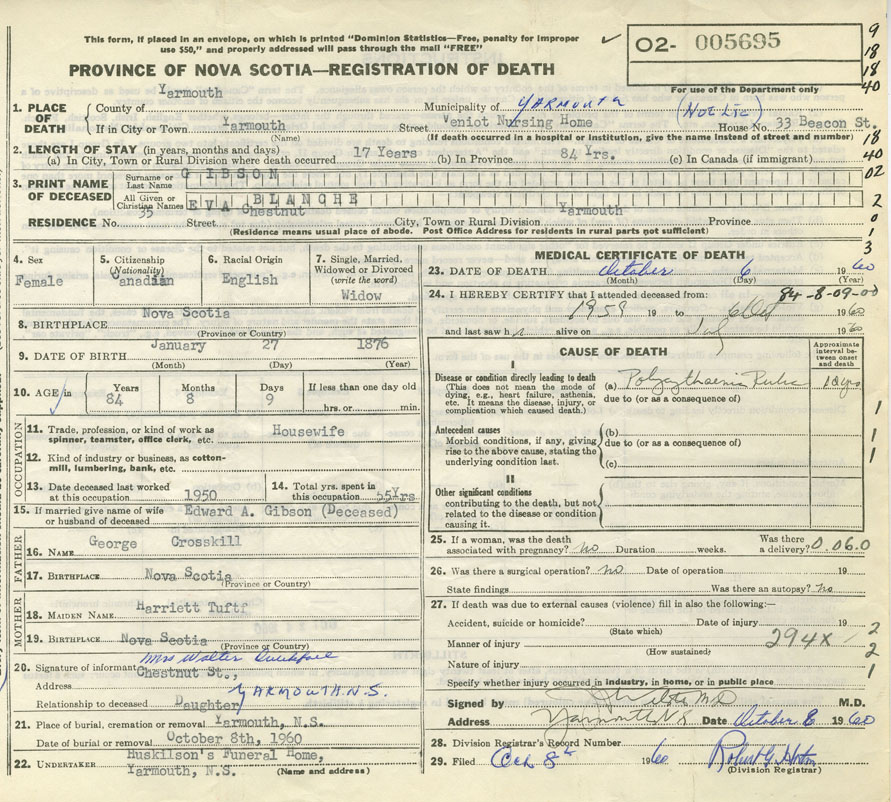 This form, if placed in an envelope, on which is printed "Dominion Statistics—Free, penalty for improper
use $50," and properly addressed will pass through the mail "FREE"
✓ O2- 005695
PROVINCE OF NOVA SCOTIA—REGISTRATION OF DEATH
For use of the Department only
9
18
18
40
18
40
02
2
0
1
3
1. PLACE OF DEATH
County of Yarmouth Municipality of YARMOUTH (NOT LTC)
If in City or Town Yarmouth Street Veniot Nursing Home House No. 33 Beacon St.
(Name) (If death occurred in a hospital or institution, give the name instead of street and number)
2. LENGTH OF STAY (in years, months and days)
(a) In City, Town or Rural Division where death occurred 17 Years (b) In Province 84 Yrs. (c) In Canada (if immigrant)
3. PRINT NAME OF DECEASED
Surname or Last Name GIBSON
All Given or Christian Names EVA BLANCHE
RESIDENCE No. 35 Street Chestnut City, Town or Rural Division Yarmouth Province
(Residence means usual place of abode. Post Office Address for residents in rural parts not sufficient)
4. Sex
Female
5. Citizenship (Nationality)
Canadian
6. Racial Origin
English
7. Single, Married, Widowed or Divorced (write the word)
Widow
8. BIRTHPLACE Nova Scotia
(Province or Country)
9. DATE OF BIRTH January 27 1876
(Month) (Day) (Year)
10. AGE in
Years 84
Months 8
Days 9
If less than one day old
hrs. or min.
OCCUPATION
11. Trade, profession, or kind of work as spinner, teamster, office clerk, etc. Housewife
12. Kind of industry or business, as cotton-mill, lumbering, bank, etc.
13. Date deceased last worked at this occupation 1950
14. Total yrs. spent in this occupation 55Yrs
15. If married give name of wife or husband of deceased Edward A. Gibson (Deceased)
FATHER
16. NAME George Crosskill
17. BIRTHPLACE Nova Scotia
(Province or Country)
MOTHER
18. MAIDEN NAME Harriett Tuft
19. BIRTHPLACE Nova Scotia
(Province or Country)
20. Signature of informant Mrs Walter
Address Chestnut St., YARMOUTH N.S.
Relationship to deceased Daughter
21. Place of burial, cremation or removal Yarmouth, N.S.
Date of burial or removal October 8th, 1960
22. UNDERTAKER Huskilson's Funeral Home,
Yarmouth, N.S. (Name and address)
MEDICAL CERTIFICATE OF DEATH
23. DATE OF DEATH October 6 1960
(Month) (Day) (Year)
24. I HEREBY CERTIFY that I attended deceased from: 84-8-09-00
1959 19 to 6 Oct 1960
and last saw h alive on 1960
CAUSE OF DEATH
Approximate interval between onset and death
I
Disease or condition directly leading to death
(This does not mean the mode of dying, e.g., heart failure, asthenia, etc. It means the disease, injury, or complication which caused death.)
(a)
due to (or as a consequence of)
Antecedent causes
Morbid conditions, if any, giving rise to the above cause, stating the underlying condition last.
(b)
due to (or as a consequence of)
(c)
1
1
1
II
Other significant conditions
contributing to the death, but not related to the disease or condition causing it.
25. If a woman, was the death associated with pregnancy? no Duration weeks. Was there a delivery? 0.06.0
26. Was there a surgical operation? no Date of operation 19
State findings Was there an autopsy? no
27. If death was due to external causes (violence) fill in also the following:—
Accident, suicide or homicide? Date of injury 19
(State which)
Manner of injury 294X
(How sustained)
Nature of injury
Specify whether injury occurred in industry, in home, or in public place
2
2
1
Signed by M.D. M.D.
Address Yarmouth NS Date October 8 1960
28. Division Registrar's Record Number
29. Filed Oct 8th 1960 Robert G.
(Division Registrar)